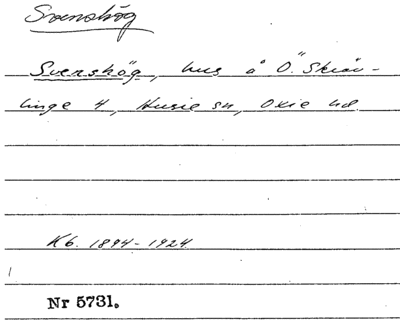 Svenshög
Svenshög, hus å Ö. Skräv-
linge 4, Husie sn, Oxie hd
Kb. 1894-1924
Nr 5731.